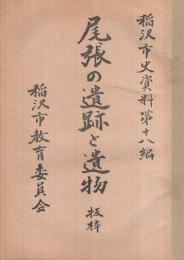 稲沢市史資料第十八編
尾張の遺跡と遺物
抜粋
稲沢市教育委員会